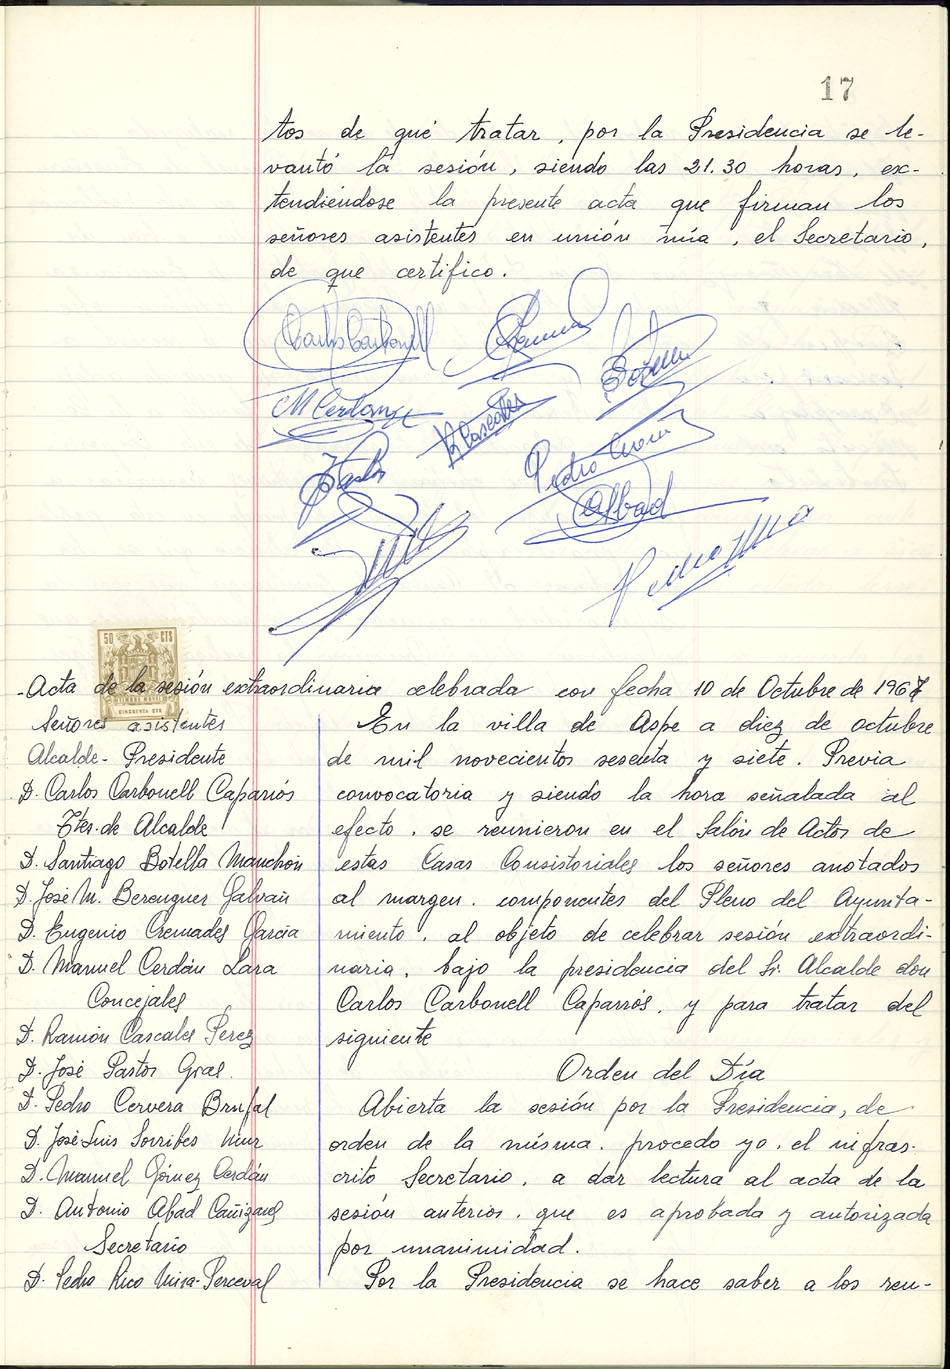 17
tos de que tratar, por la Presidencia se le-
vantó la sesión, siendo las 21.30 horas, ex-
tendiéndose la presente acta que firman los
señores asistentes en unión mía, el Secretario,
de que certifico.
Carlos Carbonell
Botella
M Cerdán
R Cascales
Pastor
Pedro Cervera
A Abad
50 CTS
CINCUENTA CTS
-Acta de la sesión extraordinaria celebrada con fecha 10 de Octubre de 1967
Señores asistentes
Alcalde-Presidente
D. Carlos Carbonell Caparrós
Ttes. de Alcalde
D. Santiago Botella Manchón
D. José M. Berenguer Galvañ
D. Eugenio Cremades García
D. Manuel Cerdán Lara
Concejales
D. Ramón Cascales Pérez
D. José Pastor Gras.
D. Pedro Cervera Brufal
D. José Luis Sorribes
D. Manuel Gómez Cerdán
D. Antonio Abad Cañizares
Secretario
D. Pedro Rico Mira-Perceval
En la villa de Aspe a diez de octubre
de mil novecientos sesenta y siete. Previa
convocatoria y siendo la hora señalada al
efecto, se reunieron en el Salón de Actos de
estas Casas Consistoriales los señores anotados
al margen, componentes del Pleno del Ayunta-
miento, al objeto de celebrar sesión extraordi-
naria, bajo la presidencia del Sr. Alcalde don
Carlos Carbonell Caparrós, y para tratar del
siguiente
Orden del Día
Abierta la sesión por la Presidencia, de
orden de la misma, procedo yo, el infras-
crito Secretario, a dar lectura al acta de la
sesión anterior, que es aprobada y autorizada
por unanimidad.
Por la Presidencia se hace saber a los reu-